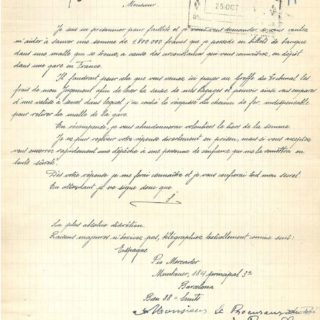 Monsieur
25 OCT
Je suis prisonnier pour faillite et je viens vous demander si vous voulez
m'aider à sauver une somme de 1.800.000 francs que je possède en billets de banque
dans une malle qui se trouve à cause des circonstances que vous connaîtrez, en dépôt
dans une gare de France.
Il faudrait pour cela que vous veniez ici payer au Greffe du Tribunal les
frais de mon jugement afin de lever la saisie de mes bagages et pouvoir ainsi vous emparer
d'une valise à secret dans laquel, j'ai caché le récépissé du chemin de fer indispensable
pour retirer la malle de la gare.
En récompense, je vous abandonnerai volontiers le tiers de la somme.
Je ne puis recevoir votre réponse directement en prison, mais si vous acceptez,
vous enverrez rapidement une dépêche à une personne de confiance qui me la remettra en
toute sûreté.
Dès votre réponse je me ferai connaître et je vous confierai tout mon secret.
En attendant je ne signe donc que
J
La plus absolue discrétion.
Raisons majeures n'écrivez pas, télégraphiez textuellement comme suit:
Espagne
Pio Mercader
Muntaner, 184, principal 2ª
Barcelona
Bon 38 - Limite
Monsieur le Procureur